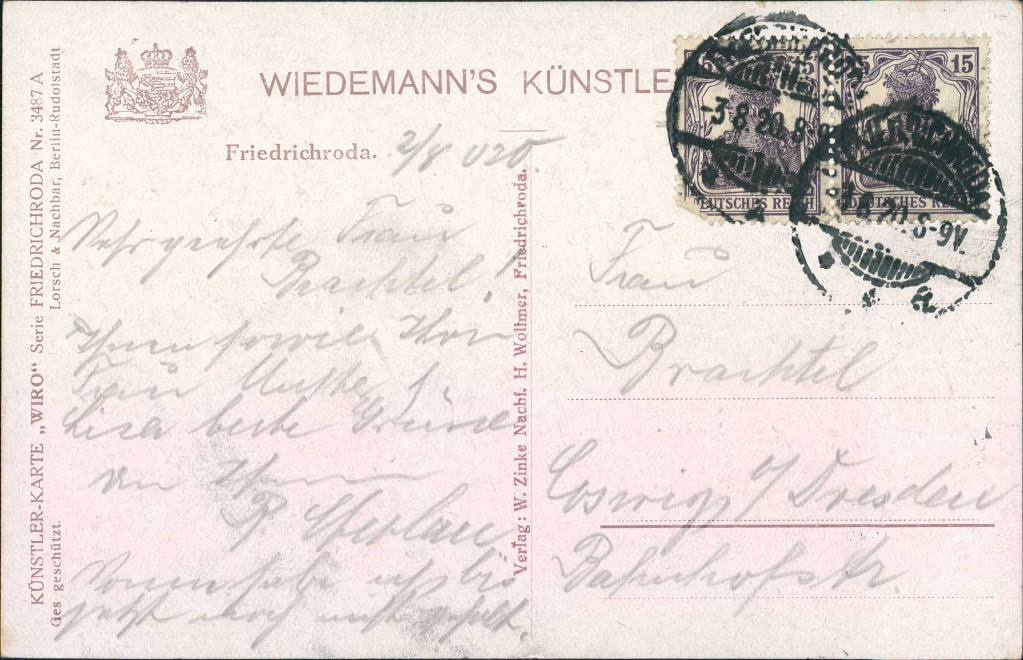 WIEDEMANN'S KÜNSTLE
Friedrichroda. 2/8 020
Sehr geehrte Frau
Brachtel!
Ihnen sowie Ihrer
Frau Mutter &
Lisa beste Grüsse
von Ihrem
P.
Sonne habe ich bis
jetzt noch nicht gehabt.
Frau
Brachtel
Coswig b/ Dresden
Bahnhofstr.
15
15
DEUTSCHES REICH
DEUTSCHES REICH
-3.8.20.8-9
8.20.8-9V
KÜNSTLER-KARTE „WIRO“ Serie FRIEDRICHRODA Nr. 3487 A
Ges geschützt. Lorsch & Nachbar, Berlin-Rudolstadt
Verlag: W. Zinke Nachf. H. Wollmer, Friedrichroda.